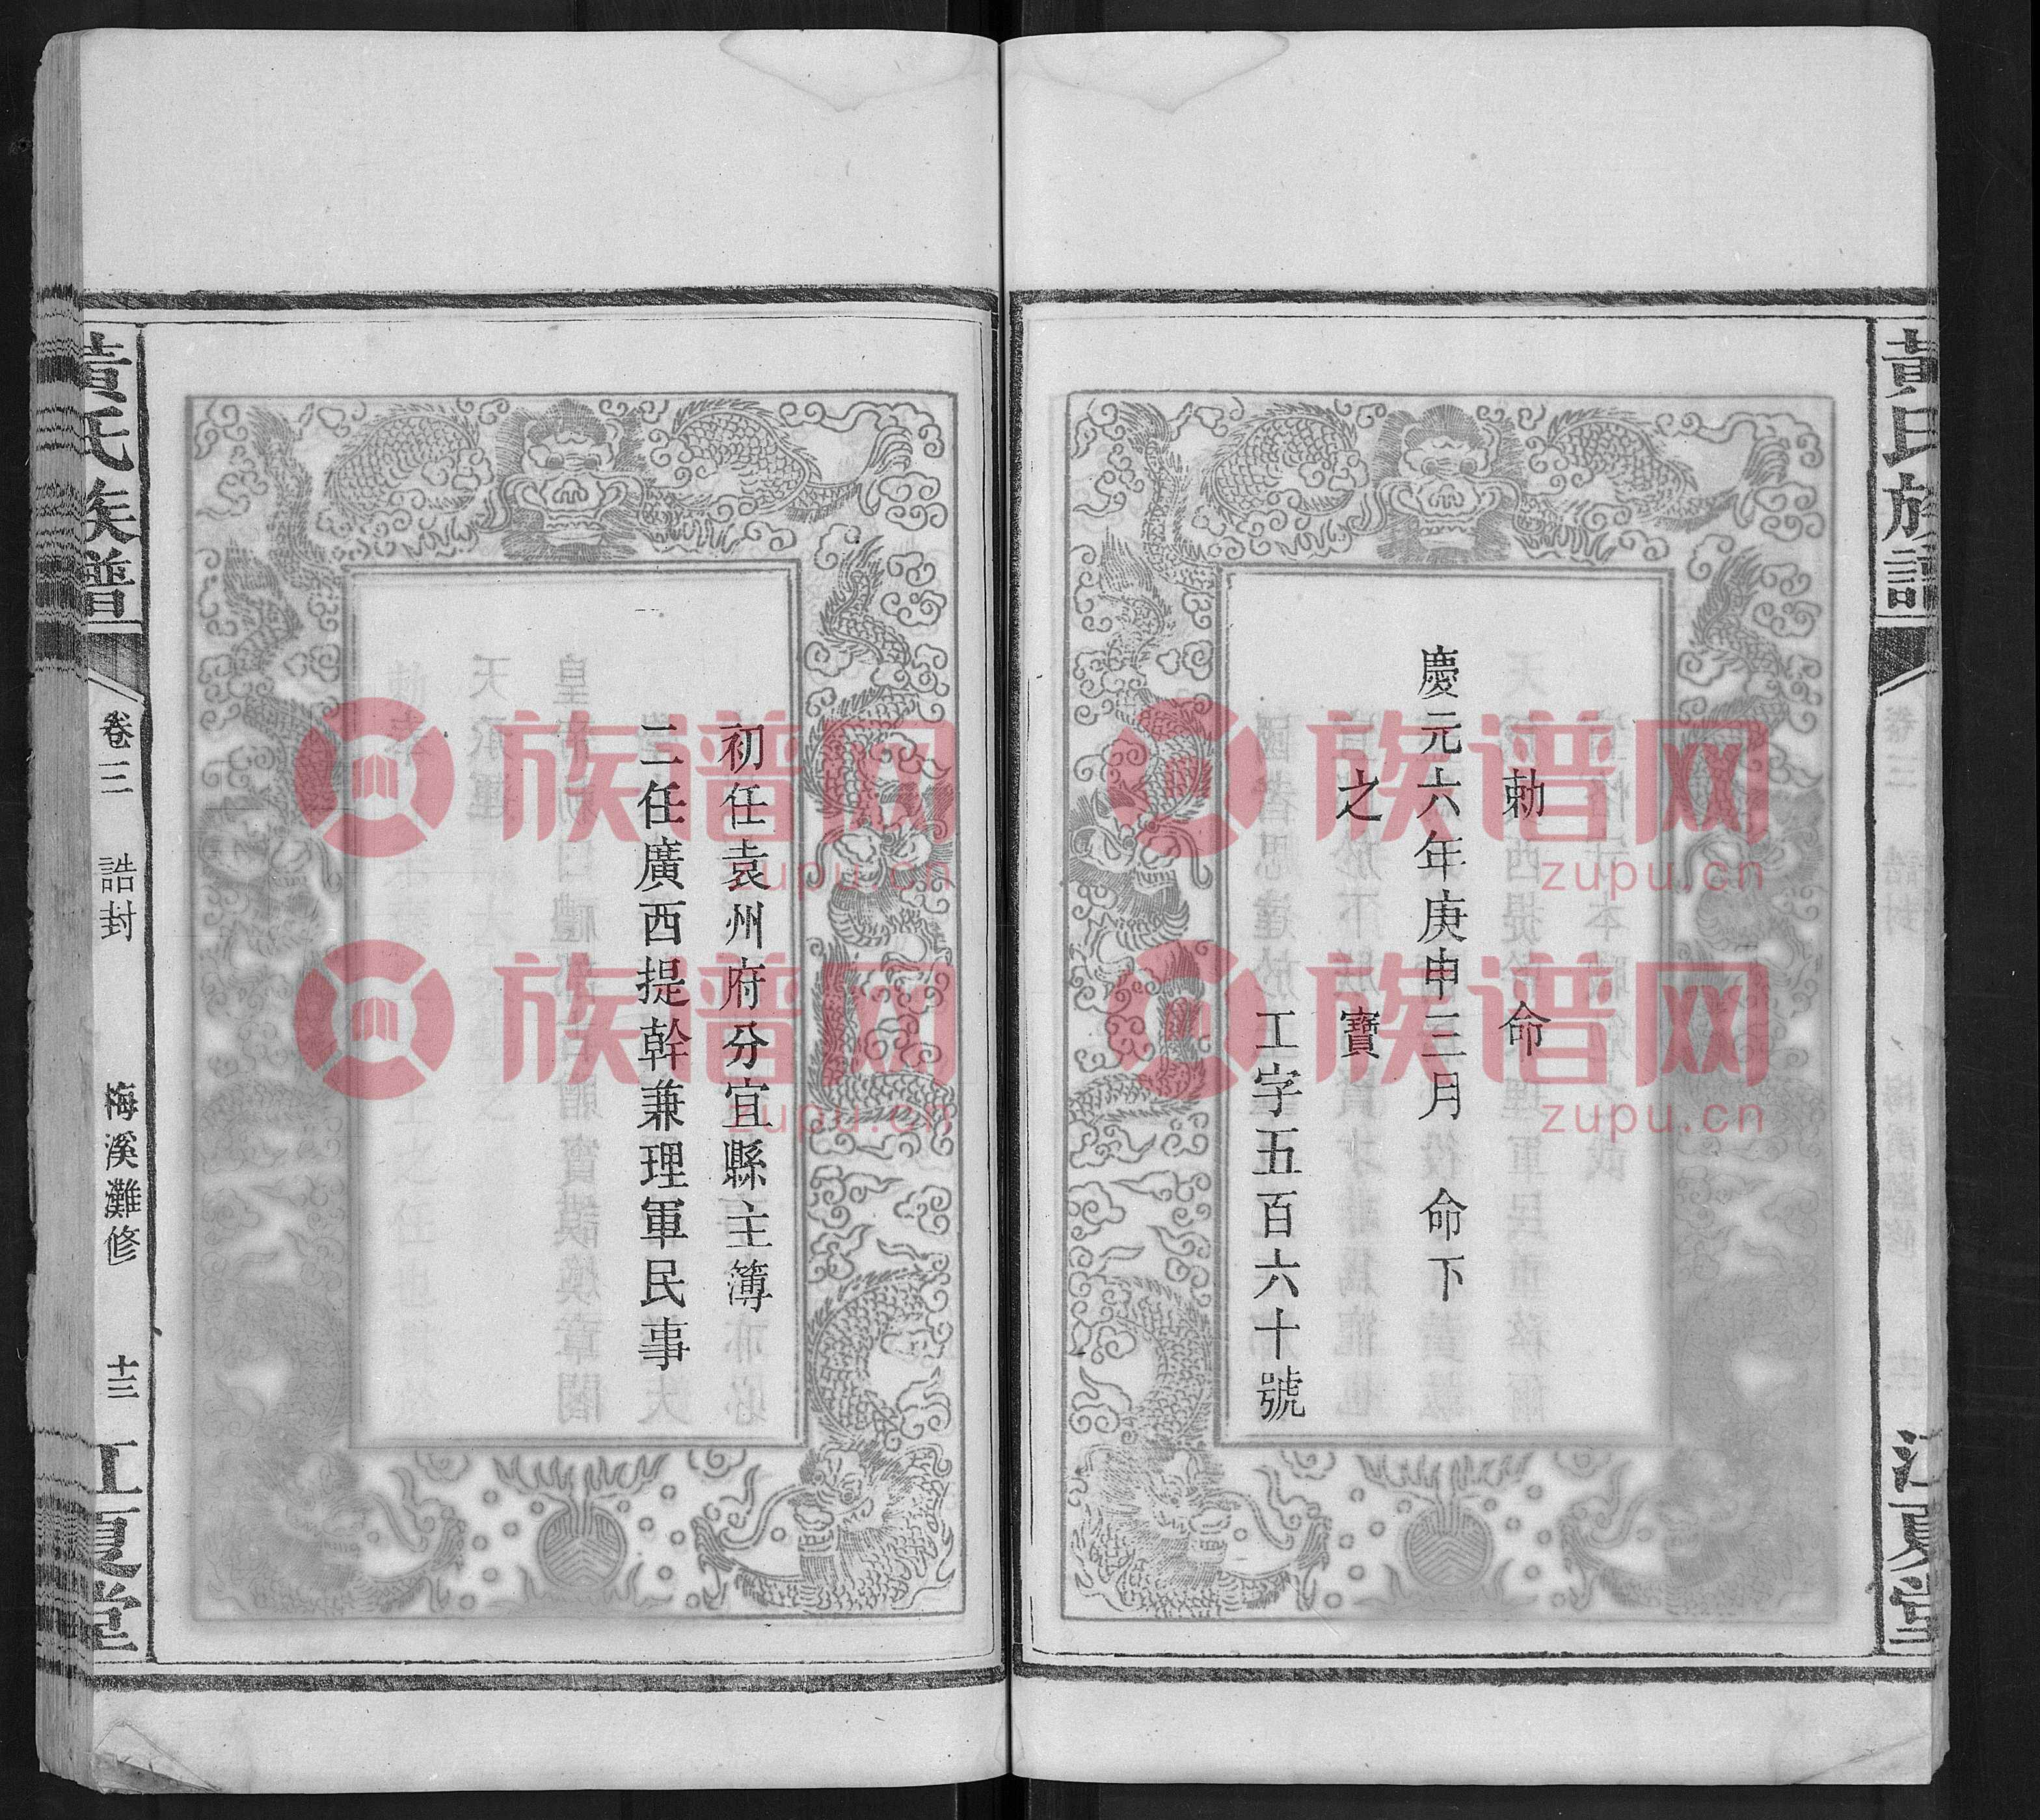 黃氏族譜
江夏堂
勅命
慶元六年庚申三月 命下
之寶
工字五百六十號
初任袁州府分宜縣主簿
二任廣西提幹兼理軍民事
黃氏族譜
卷三 誥封
梅溪灘修 十三
江夏堂
族谱网
zupu.cn
族谱网
zupu.cn
族谱网
zupu.cn
族谱网
zupu.cn